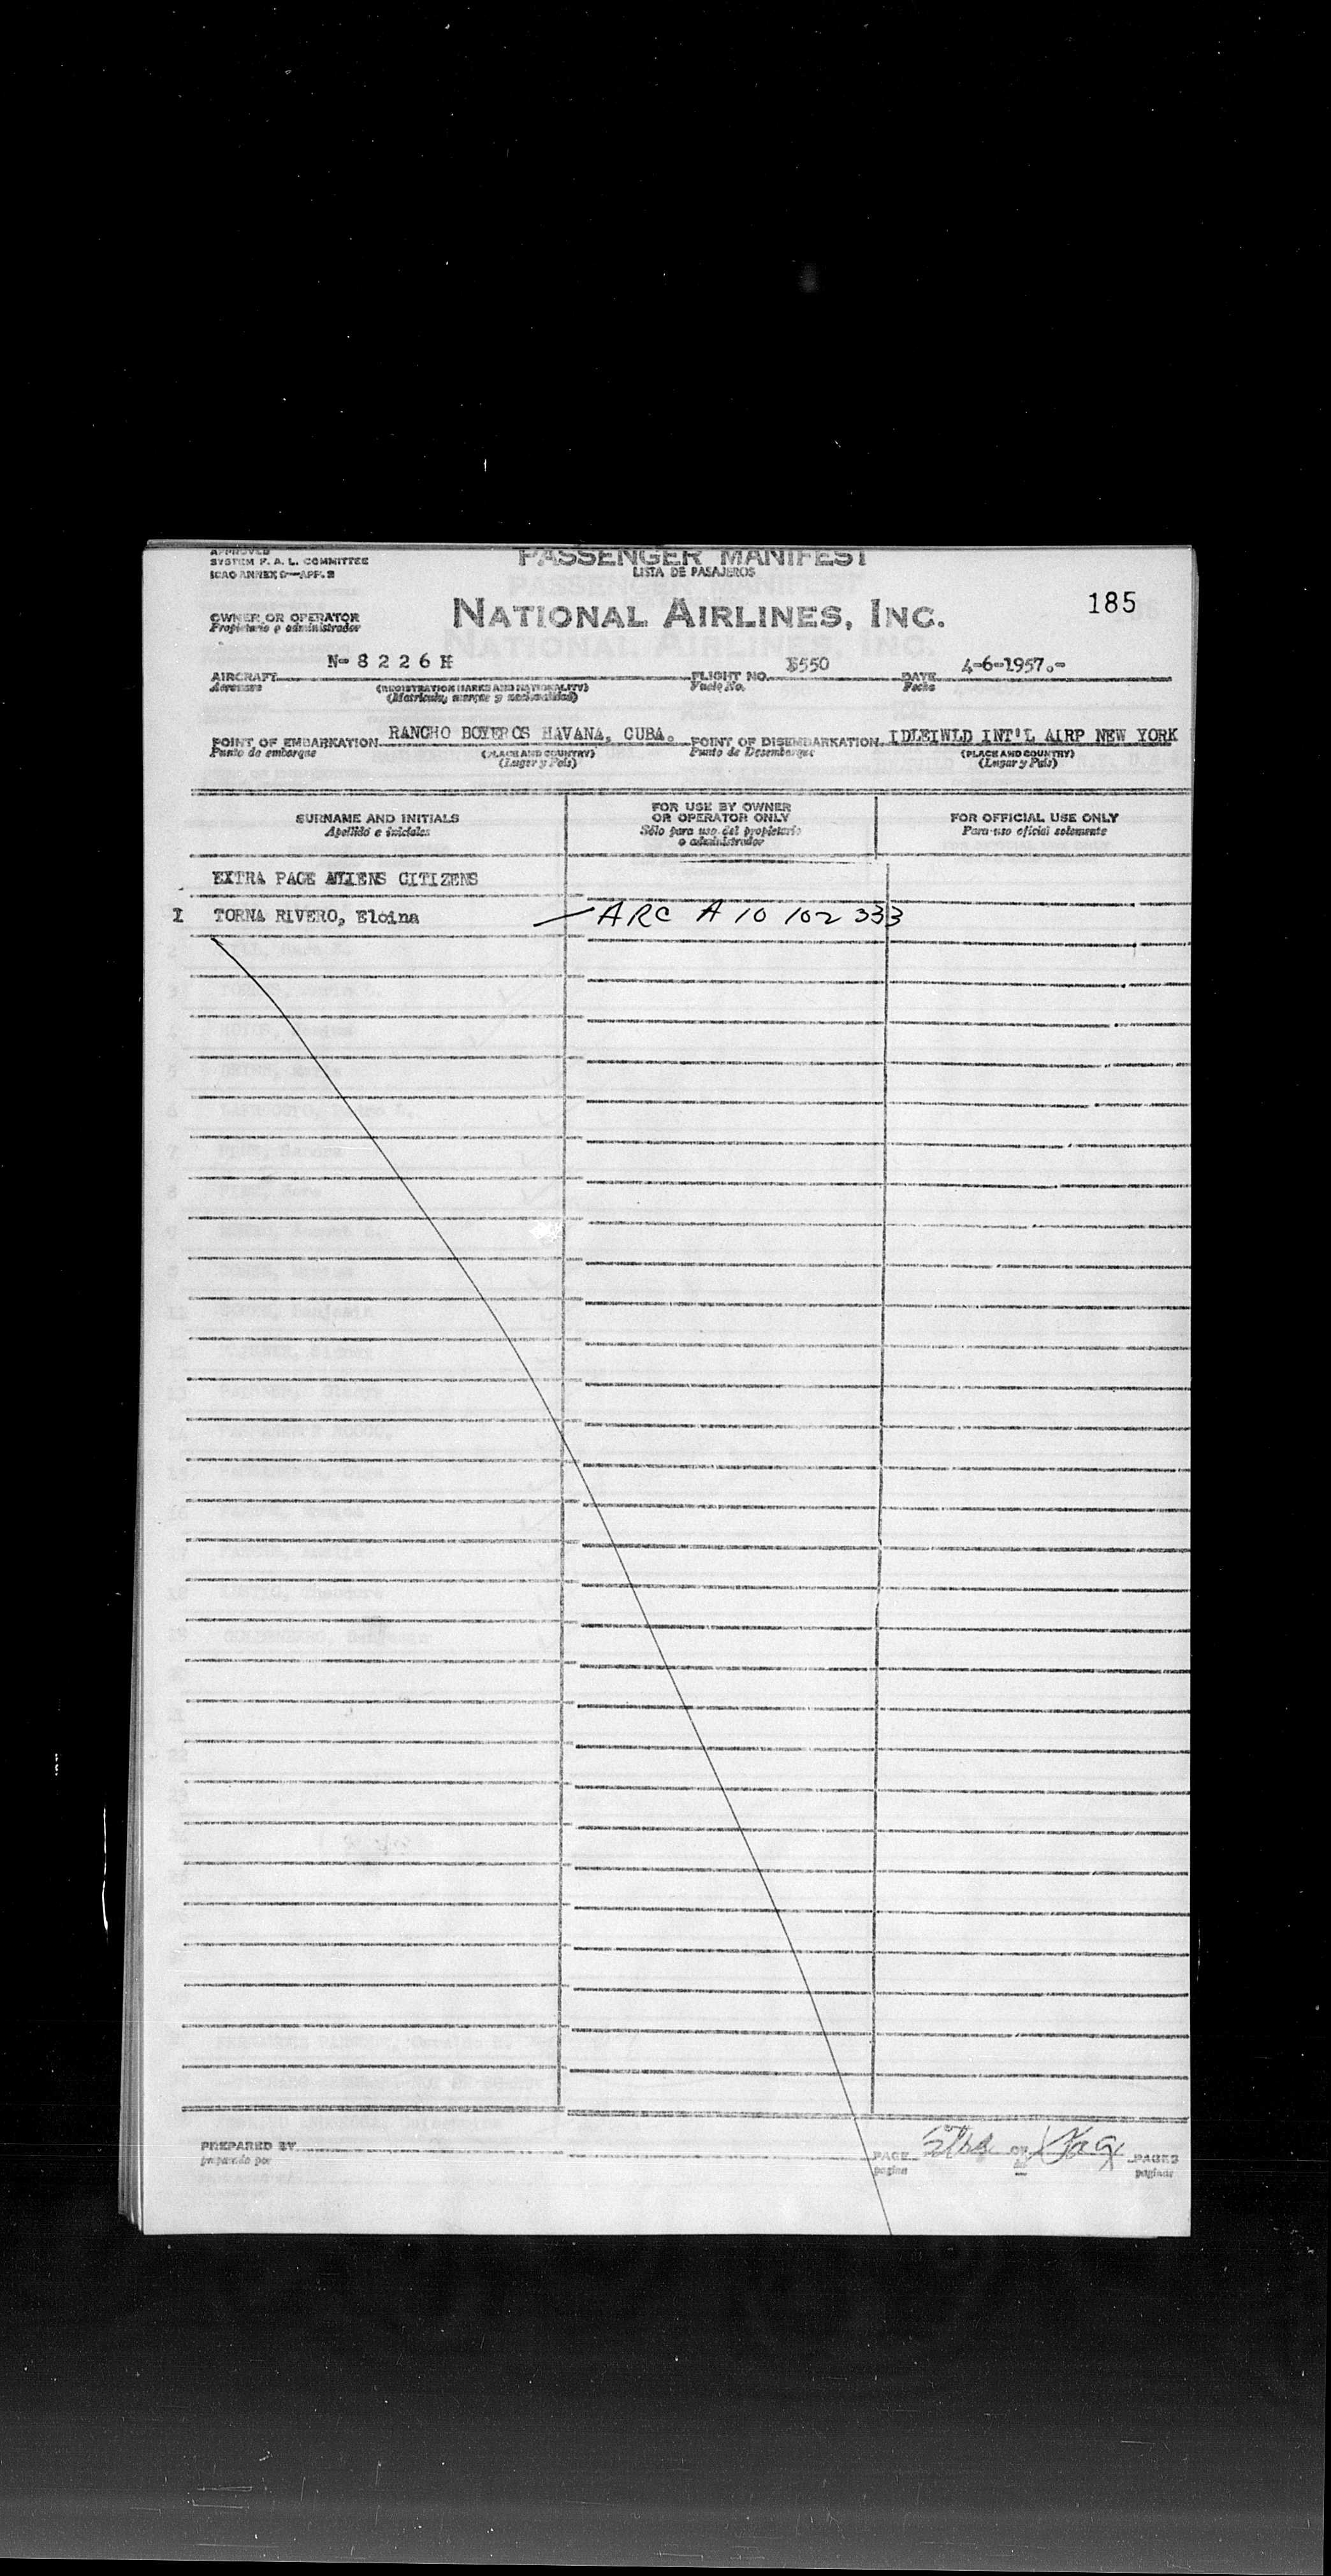 APPROVED
SYSTEM F. A. L. COMMITTEE
ICAO ANNEX 9—APP. 3
PASSENGER MANIFEST
LISTA DE PASAJEROS
185
OWNER OR OPERATOR
Propietario o administrador
NATIONAL AIRLINES, INC.
AIRCRAFT N-8 2 2 6 H FLIGHT NO. E550 DATE 4-6-1957.-
Aeronave (REGISTRATION MARKS AND NATIONALITY) Vuelo No. Fecha
(Matricula, marcas y nacionalidad)
POINT OF EMBARKATION RANCHO BOYEROS HAVANA, CUBA. POINT OF DISEMBARKATION IDLEIWLD INT'L AIRP NEW YORK
Punto de embarque (PLACE AND COUNTRY) Punto de Desembarque (PLACE AND COUNTRY)
(Lugar y País) (Lugar y País)
SURNAME AND INITIALS FOR USE BY OWNER OR OPERATOR ONLY FOR OFFICIAL USE ONLY
Apellido e iniciales Sólo para uso del propietario o administrador Para uso oficial solamente
EXTRA PAGE ALIENS CITIZENS
1 TORNA RIVERO, Eloina ARC A 10 102 333
PREPARED BY PAGE OF PAGES
preparado por pagina de paginas